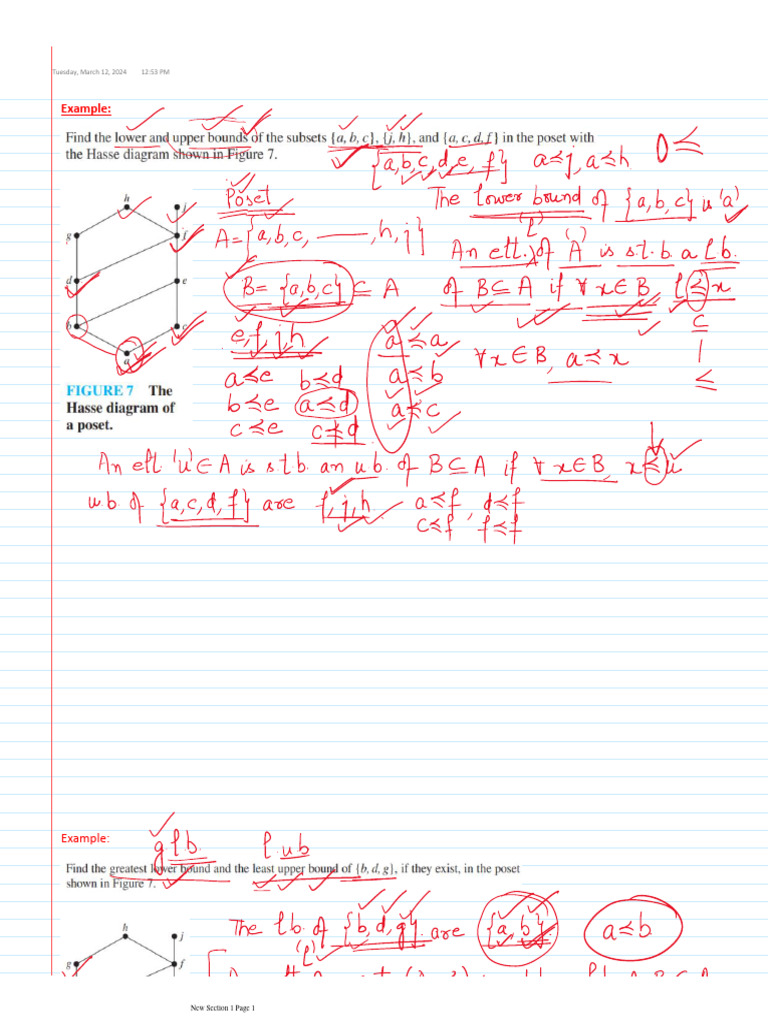 Tuesday, March 12, 2024 12:53 PM
Example:
Find the lower and upper bounds of the subsets {a, b, c}, {j, h}, and {a, c, d, f} in the poset with
the Hasse diagram shown in Figure 7.
{a,b,c,d,e,f} a≼j, a≼h 0≼
Poset
The lower bound of {a,b,c} is 'a'
A={a,b,c, ——,h,j}
(l) ( )
An elt. of A is s.t.b. a l b.
B= {a,b,c} ⊆ A
of B⊆A if ∀ x∈B, l≼x
⊆
|
≤
e,f,j,h
a≼e b≼d
b≼e a≼d
c≼e c⋠d
a≼a
a≼b
a≼c
∀x∈B, a≼x
h
j
g
f
d
e
b
c
a
FIGURE 7 The
Hasse diagram of
a poset.
An elt 'u'∈A is s.t.b. an u.b. of B⊆A if ∀ x∈B, x≼u
u.b. of {a,c,d,f} are f,j,h a≼f, d≼f
c≼f f≼f
Example:
glb. l.ub
Find the greatest lower bound and the least upper bound of {b, d, g}, if they exist, in the poset
shown in Figure 7.
The lb. of {b,d,g} are {a,b} a≼b
(l)
h
j
g
f
New Section 1 Page 1